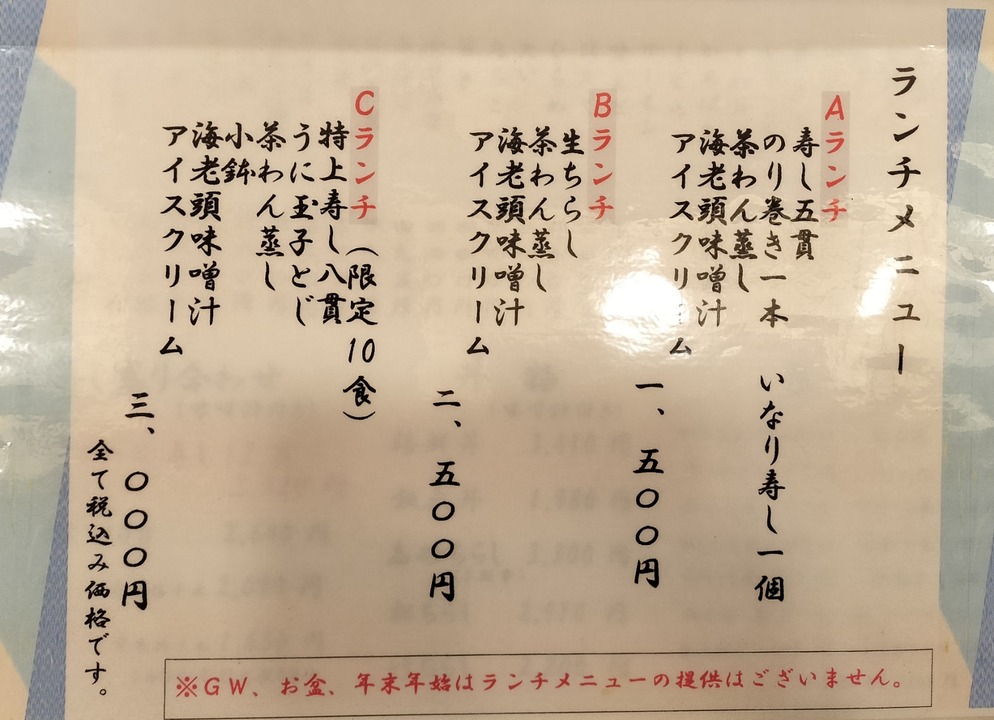 ランチメニュー
Aランチ
寿し五貫
のり巻き一本 いなり寿し一個
茶わん蒸し
海老頭味噌汁
アイスクリーム
一、五〇〇円
Bランチ
生ちらし
茶わん蒸し
海老頭味噌汁
アイスクリーム
二、五〇〇円
Cランチ（限定10食）
特上寿し八貫
うに玉子とじ
茶わん蒸し
小鉢
海老頭味噌汁
アイスクリーム
三、〇〇〇円
全て税込み価格です。
※GW、お盆、年末年始はランチメニューの提供はございません。